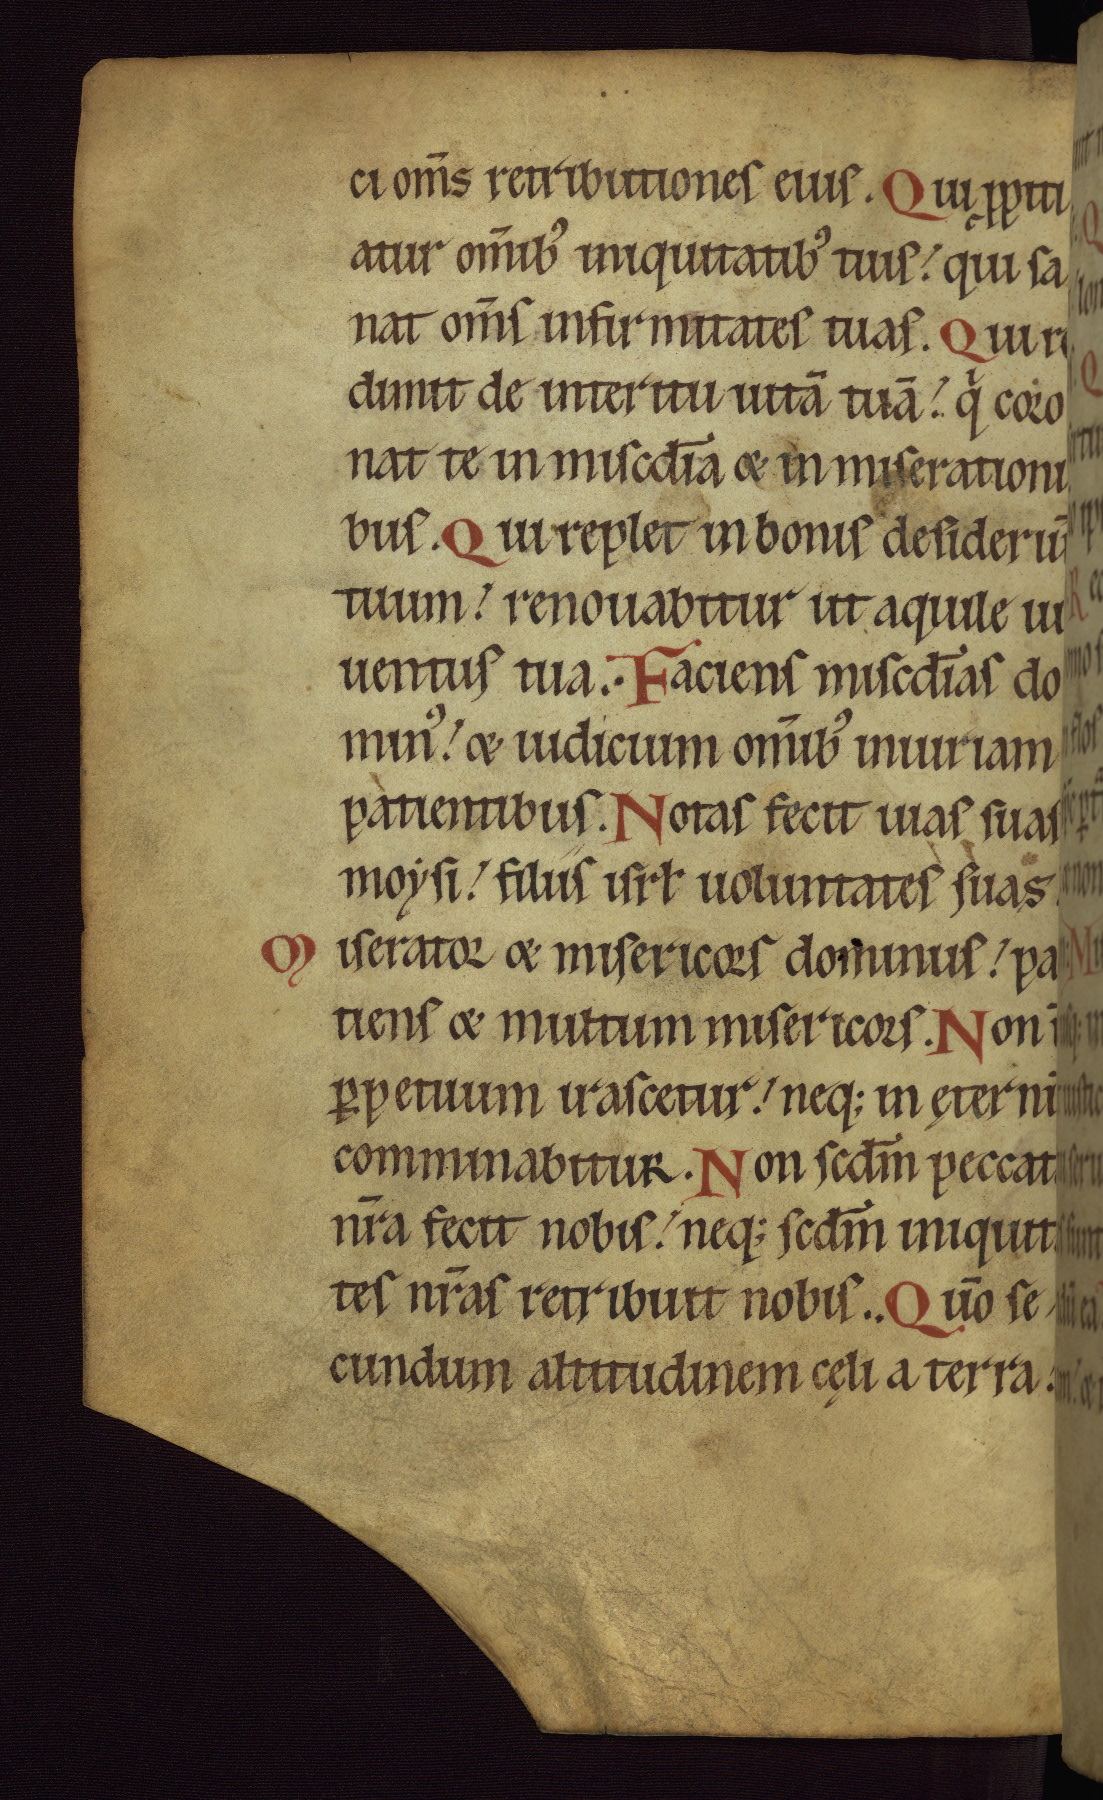 ci om̄s retributiones eius. Qui ꝓpiti
atur om̄ibꝰ iniquitatibꝰ tuis! qui sa
nat om̄s infirmitates tuas. Qui re
dimit de interitu uitā tuā! qͥ coro
nat te in misc̄dia & in miserationi
bus. Qui replet in bonis desideriū
tuum! renouabitur ut aquile iu
uentus tua. Faciens misc̄dias do
minꝰ! & iudicium om̄ibꝰ iniuriam
patientibus. Notas fecit uias suas
moẏsi! filiis isrƚ uoluntates suas.
Miserator & misericors dominus! pa
tiens & multum misericors. Non ī
ꝑpetuum irascetur! neq; in ęterni
comminabitur. Non scd̄m peccat
nr̄a fecit nobis! neq; scd̄m iniquit
tes nr̄as retribuit nobis.. Quō se
cundum altitudinem cęli a terra: